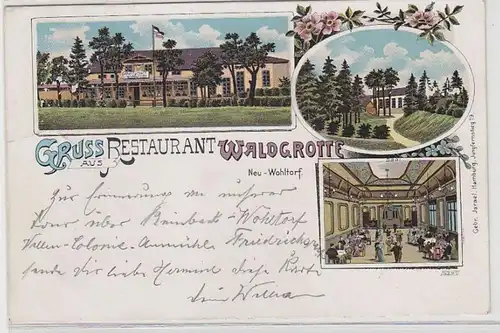 GRUSS AUS RESTAURANT WALDGROTTE
Neu-Wohltorf.
SAAL
Gebr. Jarael, Hamburg, Jungfernstieg 29.
Zur Erinnerung an unsere
Tour über Reinbeck-Wohltorf
Villen-Colonie-Aumühle Friedrichsruh
sende dir liebe Hermine diese Karte
dein Willem